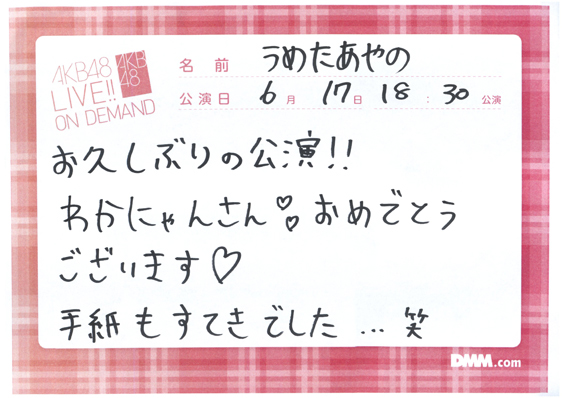 AKB48
LIVE!!
ON DEMAND
AKB
48
名前 うめたあやの
公演日 6月 17日 18:30 公演
お久しぶりの公演!!
わかにゃんさん♡♡おめでとう
ございます♡
手紙もすてきでした…笑
DMM.com